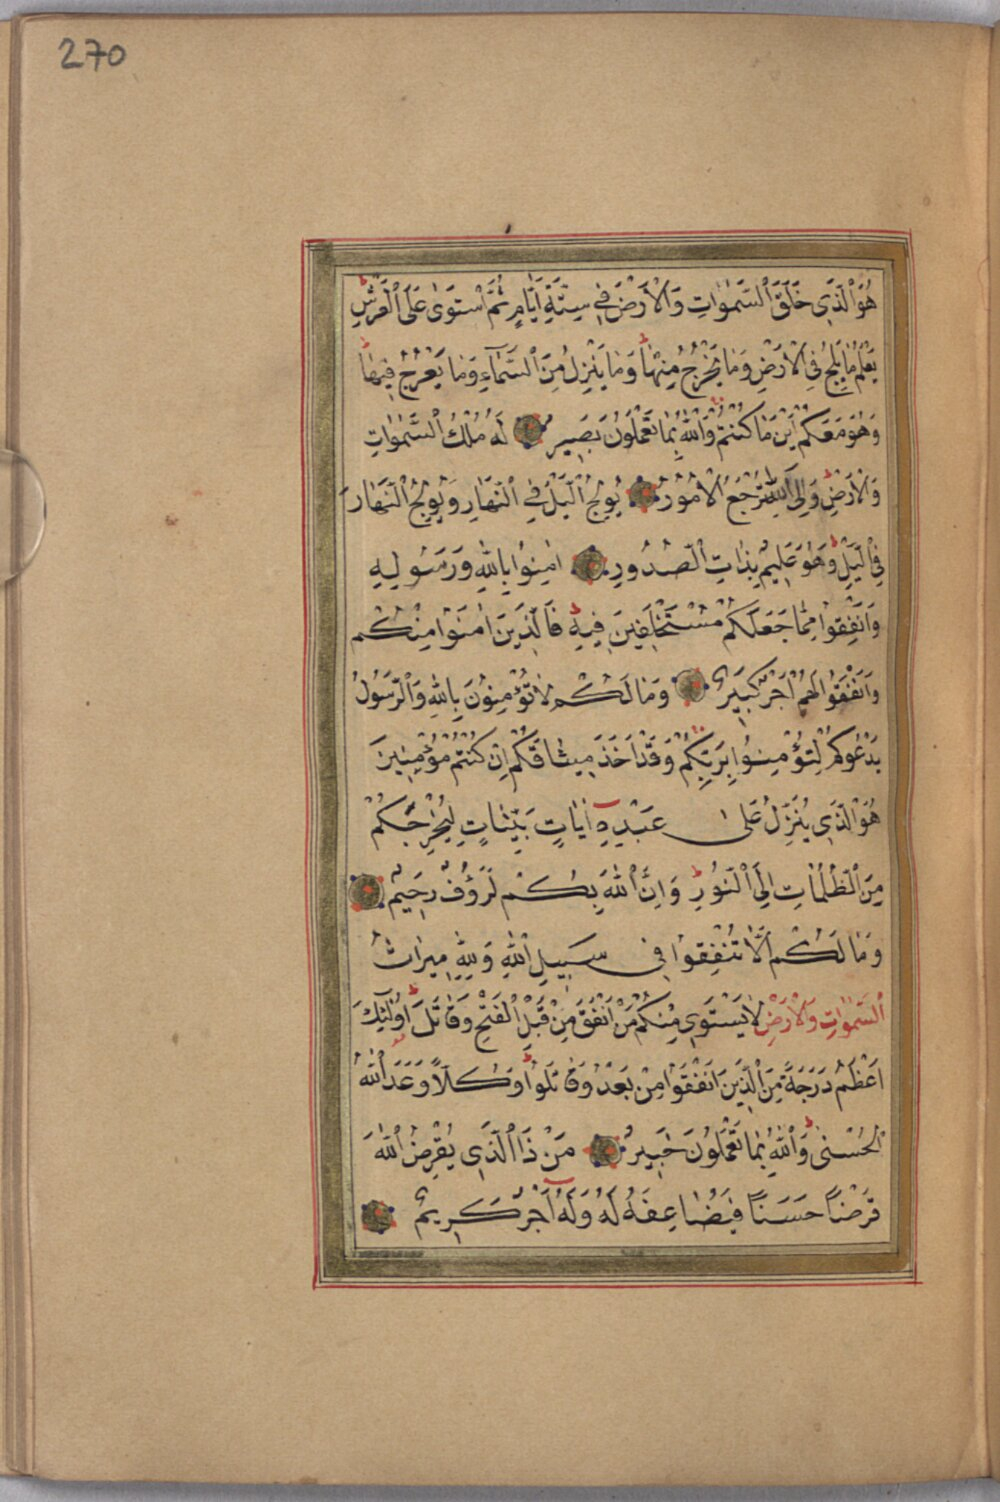 270
هُوَ الَّذِي خَلَقَ السَّمٰوَاتِ وَالْاَرْضَ فِي سِتَّةِ اَيَّامٍ ثُمَّ اسْتَوٰى عَلَى الْعَرْشِ
يَعْلَمُ مَا يَلِجُ فِي الْاَرْضِ وَمَا يَخْرُجُ مِنْهَا وَمَا يَنْزِلُ مِنَ السَّمَآءِ وَمَا يَعْرُجُ فِيهَا
وَهُوَ مَعَكُمْ اَيْنَ مَا كُنْتُمْ وَاللّٰهُ بِمَا تَعْمَلُونَ بَصِيرٌ لَهُ مُلْكُ السَّمٰوَاتِ
وَالْاَرْضِ وَاِلَى اللّٰهِ تُرْجَعُ الْاُمُورُ يُولِجُ الَّيْلَ فِي النَّهَارِ وَيُولِجُ النَّهَارَ
فِي الَّيْلِ وَهُوَ عَلِيمٌ بِذَاتِ الصُّدُورِ اٰمِنُوا بِاللّٰهِ وَرَسُولِهِ
وَاَنْفِقُوا مِمَّا جَعَلَكُمْ مُسْتَخْلَفِينَ فِيهِ فَالَّذِينَ اٰمَنُوا مِنْكُمْ
وَاَنْفَقُوا لَهُمْ اَجْرٌ كَبِيرٌ وَمَا لَكُمْ لَا تُؤْمِنُونَ بِاللّٰهِ وَالرَّسُولُ
يَدْعُوكُمْ لِتُؤْمِنُوا بِرَبِّكُمْ وَقَدْ اَخَذَ مِيثَاقَكُمْ اِنْ كُنْتُمْ مُؤْمِنِينَ
هُوَ الَّذِي يُنَزِّلُ عَلٰى عَبْدِهِ اٰيَاتٍ بَيِّنَاتٍ لِيُخْرِجَكُمْ
مِنَ الظُّلُمَاتِ اِلَى النُّورِ وَاِنَّ اللّٰهَ بِكُمْ لَرَؤُفٌ رَحِيمٌ
وَمَا لَكُمْ اَلَّا تُنْفِقُوا فِي سَبِيلِ اللّٰهِ وَلِلّٰهِ مِيرَاثُ
السَّمٰوَاتِ وَالْاَرْضِ لَا يَسْتَوِي مِنْكُمْ مَنْ اَنْفَقَ مِنْ قَبْلِ الْفَتْحِ وَقَاتَلَ اُولٰٓئِكَ
اَعْظَمُ دَرَجَةً مِنَ الَّذِينَ اَنْفَقُوا مِنْ بَعْدُ وَقَاتَلُوا وَكُلًّا وَعَدَ اللّٰهُ
الْحُسْنٰى وَاللّٰهُ بِمَا تَعْمَلُونَ خَبِيرٌ مَنْ ذَا الَّذِي يُقْرِضُ اللّٰهَ
قَرْضًا حَسَنًا فَيُضَاعِفَهُ لَهُ وَلَهُ اَجْرٌ كَرِيمٌ